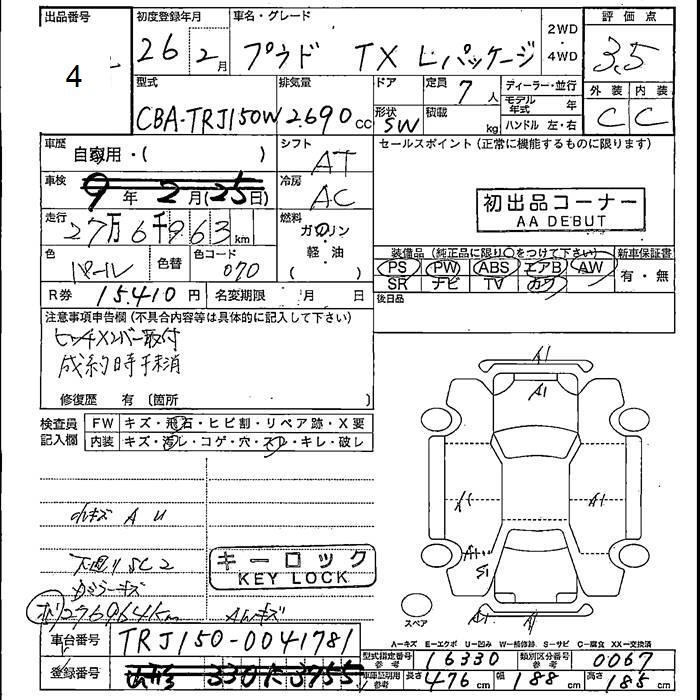 出品番号 初度登録年月 車名・グレード 2WD・4WD 評価点
4 26年2月 プラド TX Lパッケージ 3.5
型式 排気量 ドア 定員 7人 ディーラー・並行 外装 内装
CBA-TRJ150W 2690cc 形状 SW 積載 kg モデル年式 年 C C
ハンドル 左・右
車歴 自家用・( ) シフト AT セールスポイント (正常に機能するものに限ります)
車検 9年2月(25日) 冷房 AC 初出品コーナー
AA DEBUT
走行 27万6千963km 燃料 ガソリン
軽・油
( )
色 パール 色替 色コード 070 装備品 (純正品に限り○をつけて下さい) 新車保証書
PS PW ABS エアB AW 有・無
SR ナビ TV カワ
R券 15,410円 名変期限 月 日 後日品
注意事項申告欄 (不具合内容等は具体的に記入して下さい)
ヒッチメンバー取付
成約時手続消
修復歴 有 〔箇所 〕
検査員記入欄 FW キズ・飛石・ヒビ割・リペア跡・X要
内装 キズ・汚レ・コゲ・穴・スレ・キレ・破レ
A1
A1
A1 A1
A1
S1
A1
小キズ A U
下廻りSC2
キーロック
KEY LOCK
276964km AWキズ
スペア
A−キズ E−エクボ U−凹み W−補修跡 S−サビ C−腐食 XX−交換済
車台番号 TRJ150-0041781
型式指定番号 参考 16330 類別区分番号 参考 0067
登録番号 330
車庫証明用 参考 長さ 476cm 幅 188cm 高さ 185cm